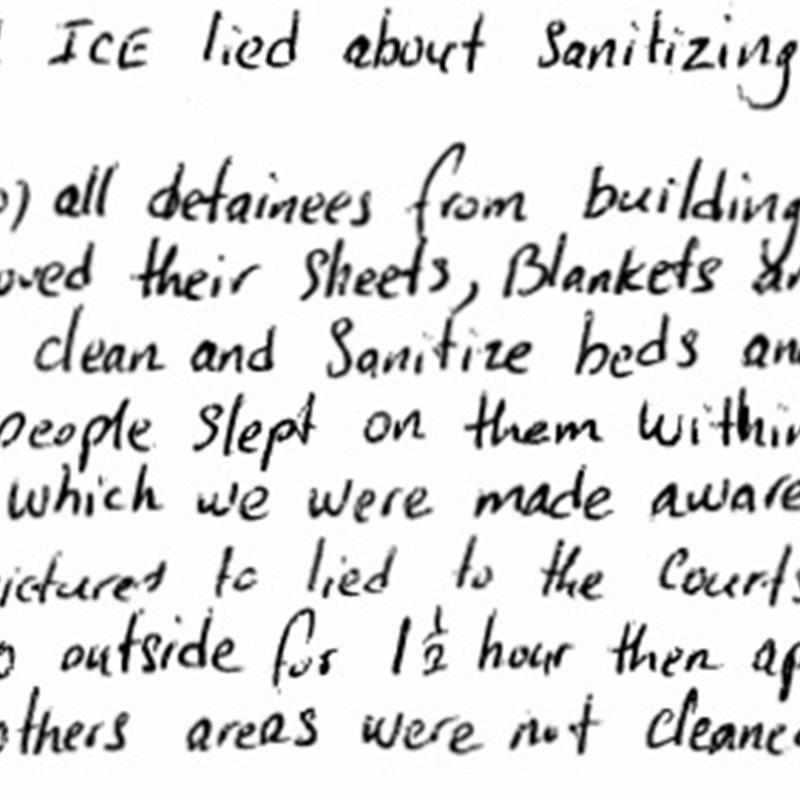 ICE lied about Sanitizing
all detainees from building
their Sheets, Blankets
clean and Sanitize beds an
people Slept on them Within
which we were made aware
to lied to the Courts
outside for 1 1/2 hour then ap
others areas were not Cleaned